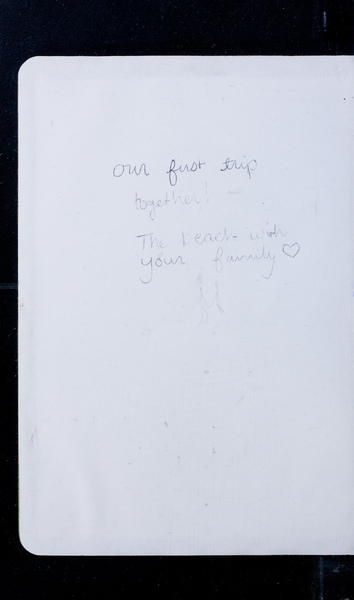 our first trip
together!
The beach with
your family ♡